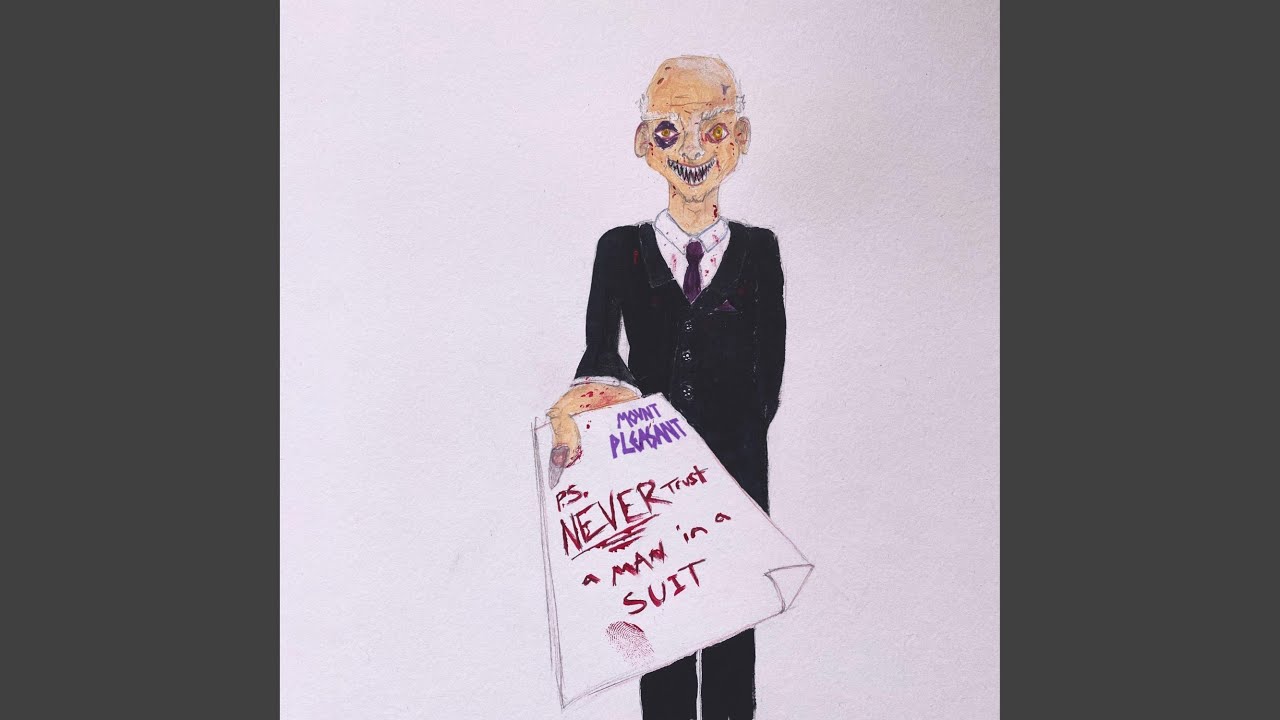 MOUNT
PLEASANT
P.S.
NEVER Trust
a MAN in a
SUIT